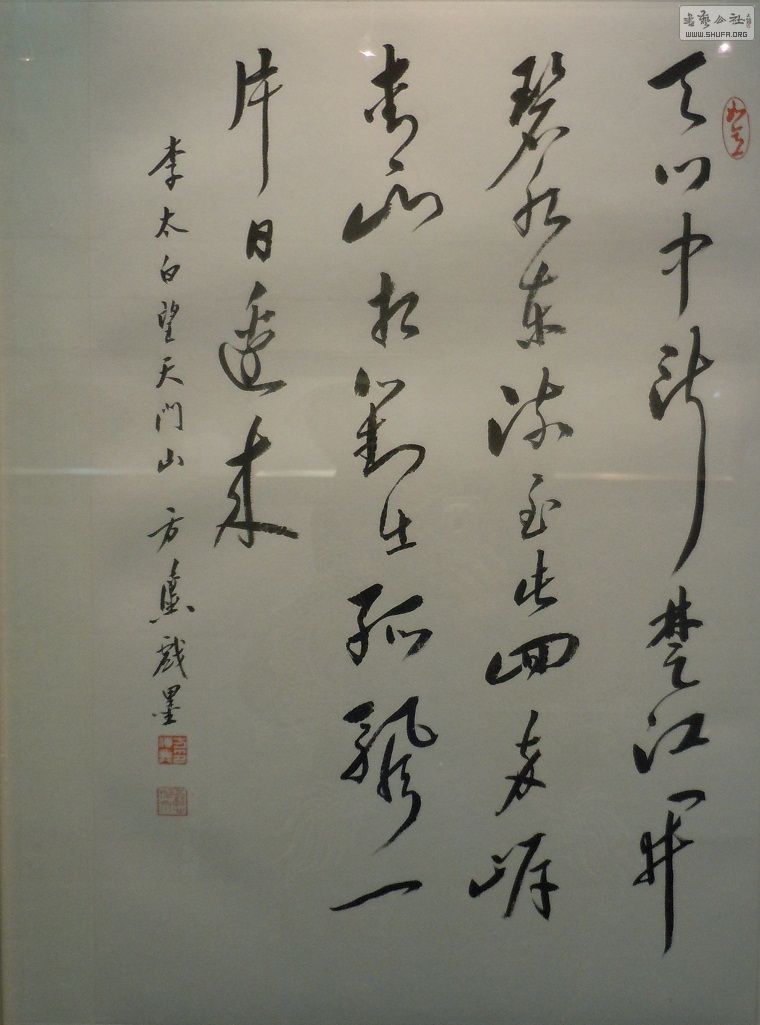 書藝公社
WWW.SHUFA.ORG
天门中斷楚江開
碧水東流至此回两岸
青山相對出孤颿一
片日邊来
李太白望天門山 方 戲墨